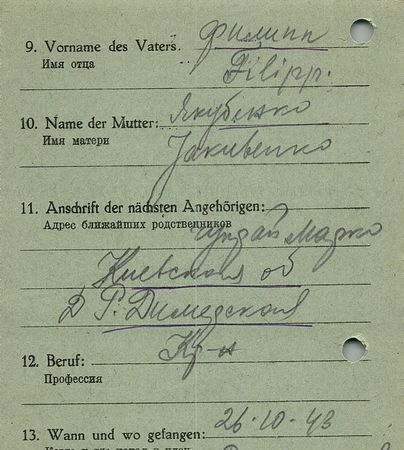 9. Vorname des Vaters: Филипп
Имя отца
Filipp.
10. Name der Mutter: Якубенко
Имя матери
Jakubenko
11. Anschrift der nächsten Angehörigen:
Адрес ближайших родственников Марко
Киевская об
Д Р. Димедская
12. Beruf: Кр-н
Профессия
26·10·43
13. Wann und wo gefangen: